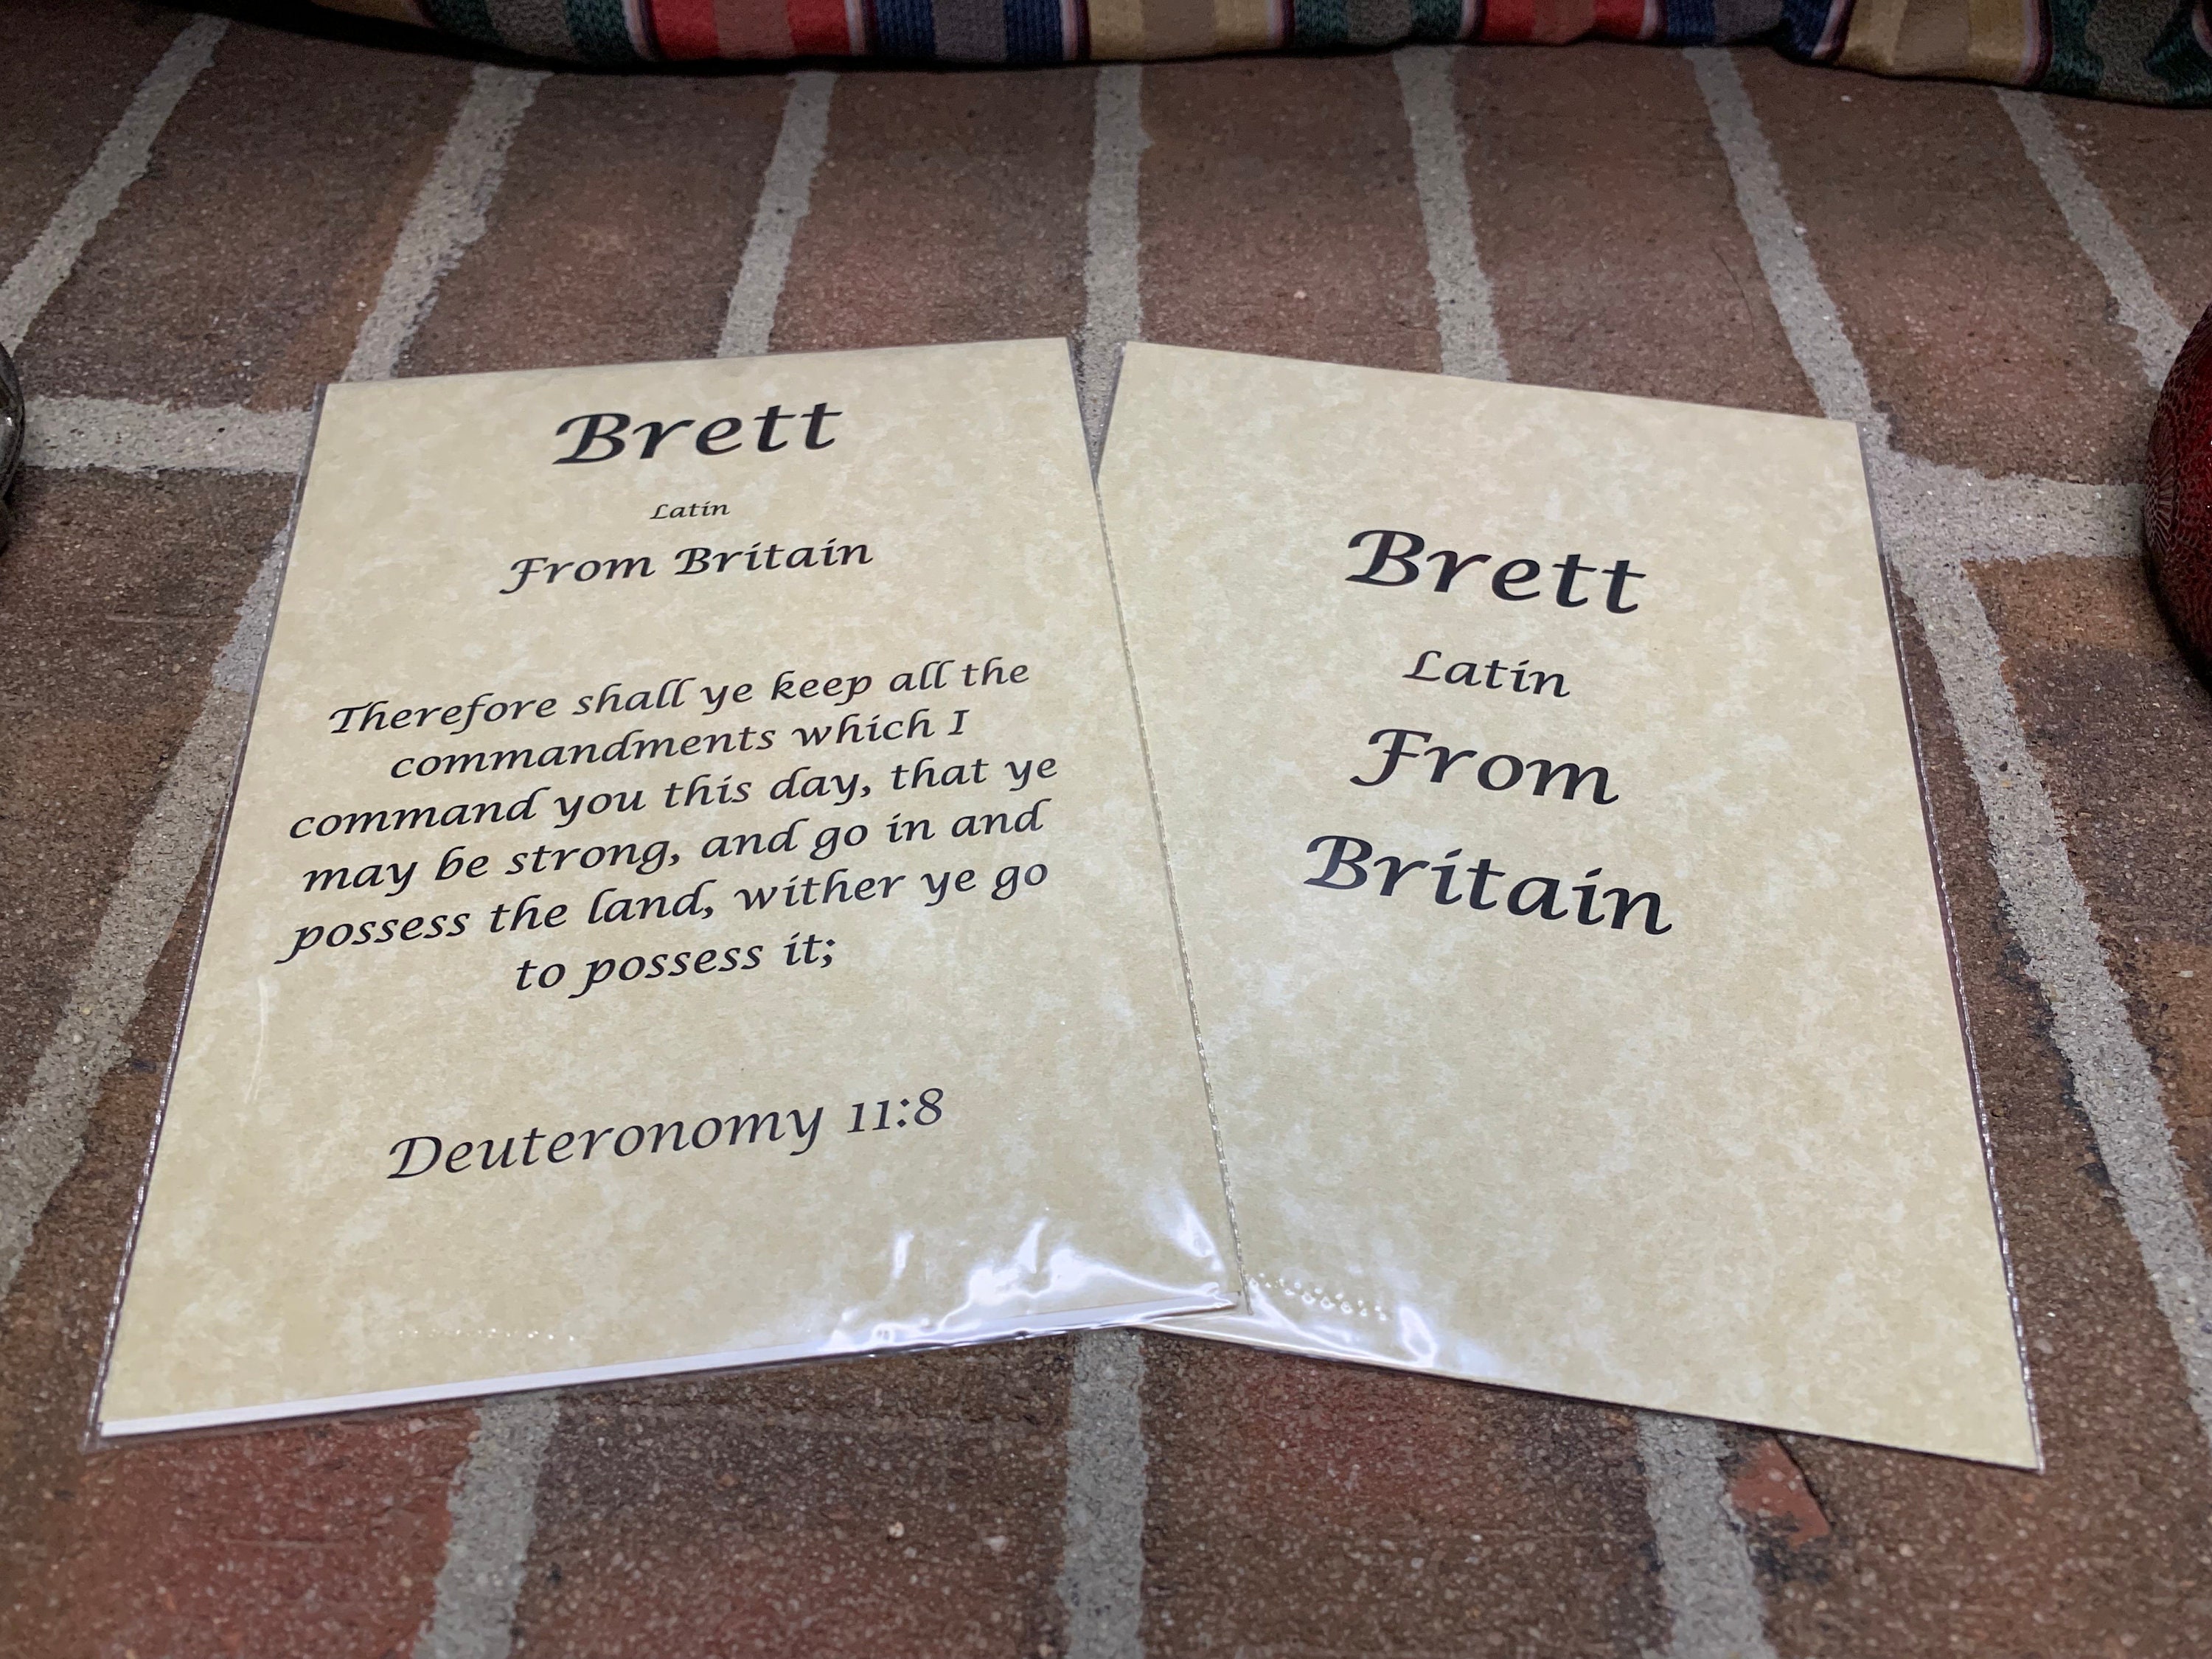 Brett
Latin
From Britain
Therefore shall ye keep all the
commandments which I
command you this day, that ye
may be strong, and go in and
possess the land, wither ye go
to possess it;
Deuteronomy 11:8
Brett
Latin
From
Britain